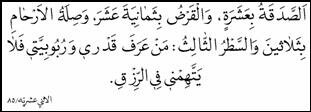 اَلصَّدَقَةُ بِعَشَرَةٍ، وَالْقَرْضُ بِثَمَانِيَةَ عَشَرَ، وَصِلَةُ الْأَرْحَامِ
بِثَلَاثِينَ وَالسَّطْرُ الثَّالِثُ: مَنْ عَرَفَ قَدْرِي وَرُبُوبِيَّتِي فَلَا
يَتَّهِمْنِي فِي الرِّزْقِ.
الاثني عشريّة/٨٥